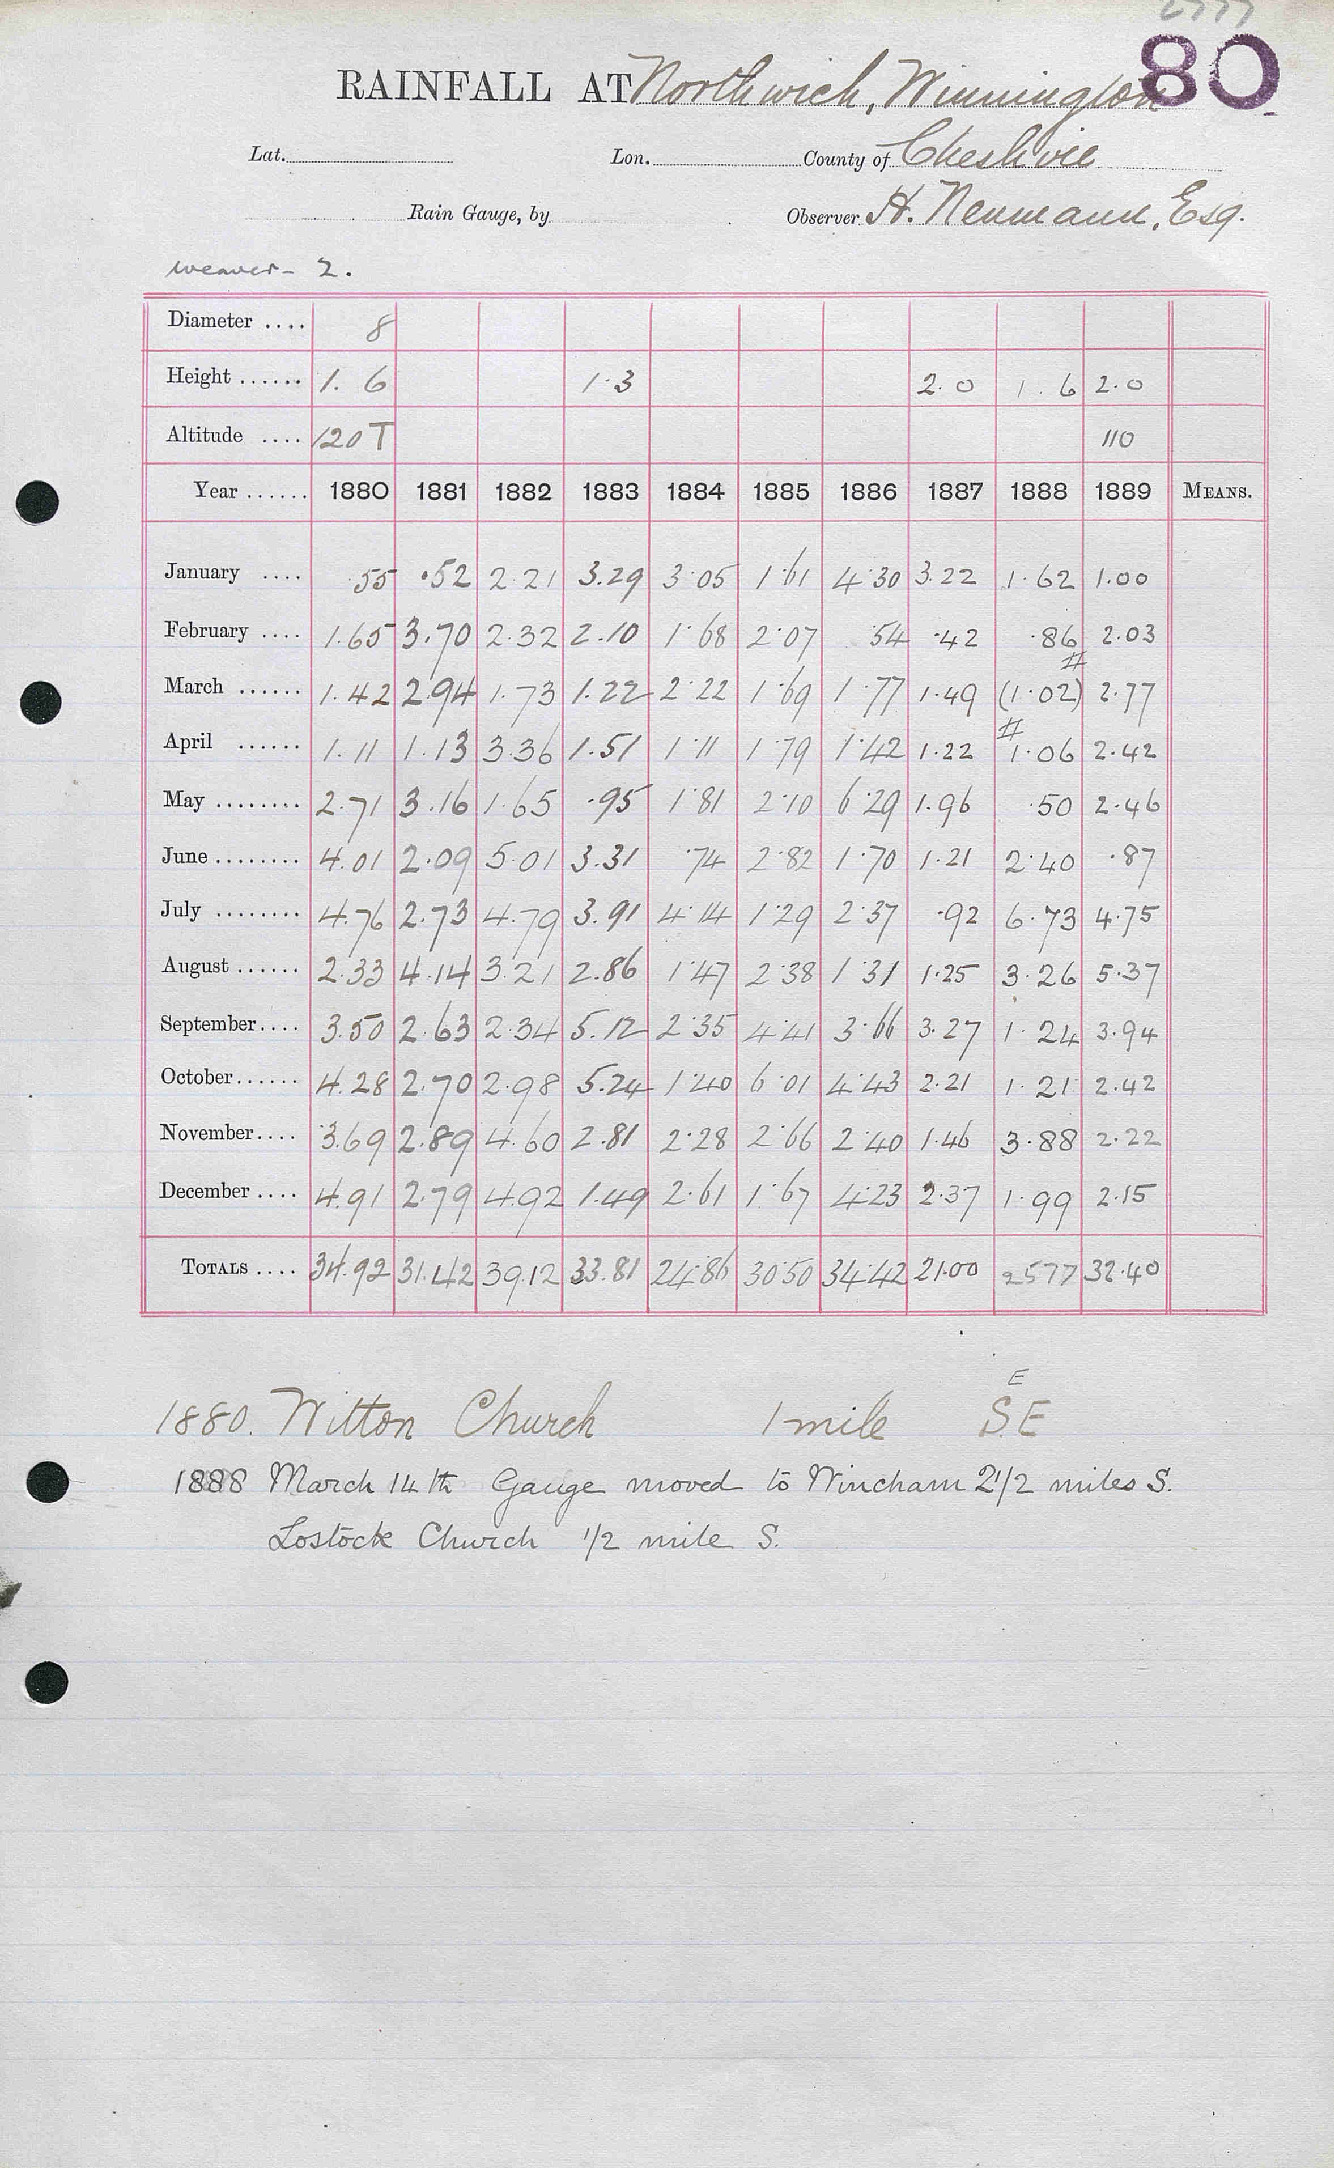 80
RAINFALL AT Northwich, Winnington
Lat. Lon. County of Cheshire
Rain Gauge, by Observer H. Neumann, Esq.
weaver - 2.
Diameter .... 8
Height ...... 1. 6 1.3 2.0 1.6 2.0
Altitude .... 120 T 110
Year ...... 1880 1881 1882 1883 1884 1885 1886 1887 1888 1889 MEANS.
January .... .55 .52 2.21 3.29 3.05 1.61 4.30 3.22 1.62 1.00
February .... 1.65 3.70 2.32 2.10 1.68 2.07 .54 .42 .86 2.03
March ...... 1.42 2.94 1.73 1.22 2.22 1.69 1.77 1.49 (1.02) # 2.77
April ...... 1.11 1.13 3.36 1.51 1.11 1.79 1.42 1.22 # 1.06 2.42
May ........ 2.71 3.16 1.65 .95 1.81 2.10 6.29 1.96 .50 2.46
June ........ 4.01 2.09 5.01 3.31 .74 2.82 1.70 1.21 2.40 .87
July ........ 4.76 2.73 4.79 3.91 4.14 1.29 2.37 .92 6.73 4.75
August ...... 2.33 4.14 3.21 2.86 1.47 2.38 1.31 1.25 3.26 5.37
September.... 3.50 2.63 2.34 5.12 2.35 4.41 3.66 3.27 1.24 3.94
October...... 4.28 2.70 2.98 5.24 1.40 6.01 4.43 2.21 1.21 2.42
November.... 3.69 2.89 4.60 2.81 2.28 2.66 2.40 1.46 3.88 2.22
December .... 4.91 2.79 4.92 1.49 2.61 1.67 4.23 2.37 1.99 2.15
TOTALS .... 34.92 31.42 39.12 33.81 24.86 30.50 34.42 21.00 25.77 32.40
E
1880. Witton Church 1 mile SE
1888 March 14th Gauge moved to Wincham 2 1/2 miles S.
Lostock Church 1/2 mile S.